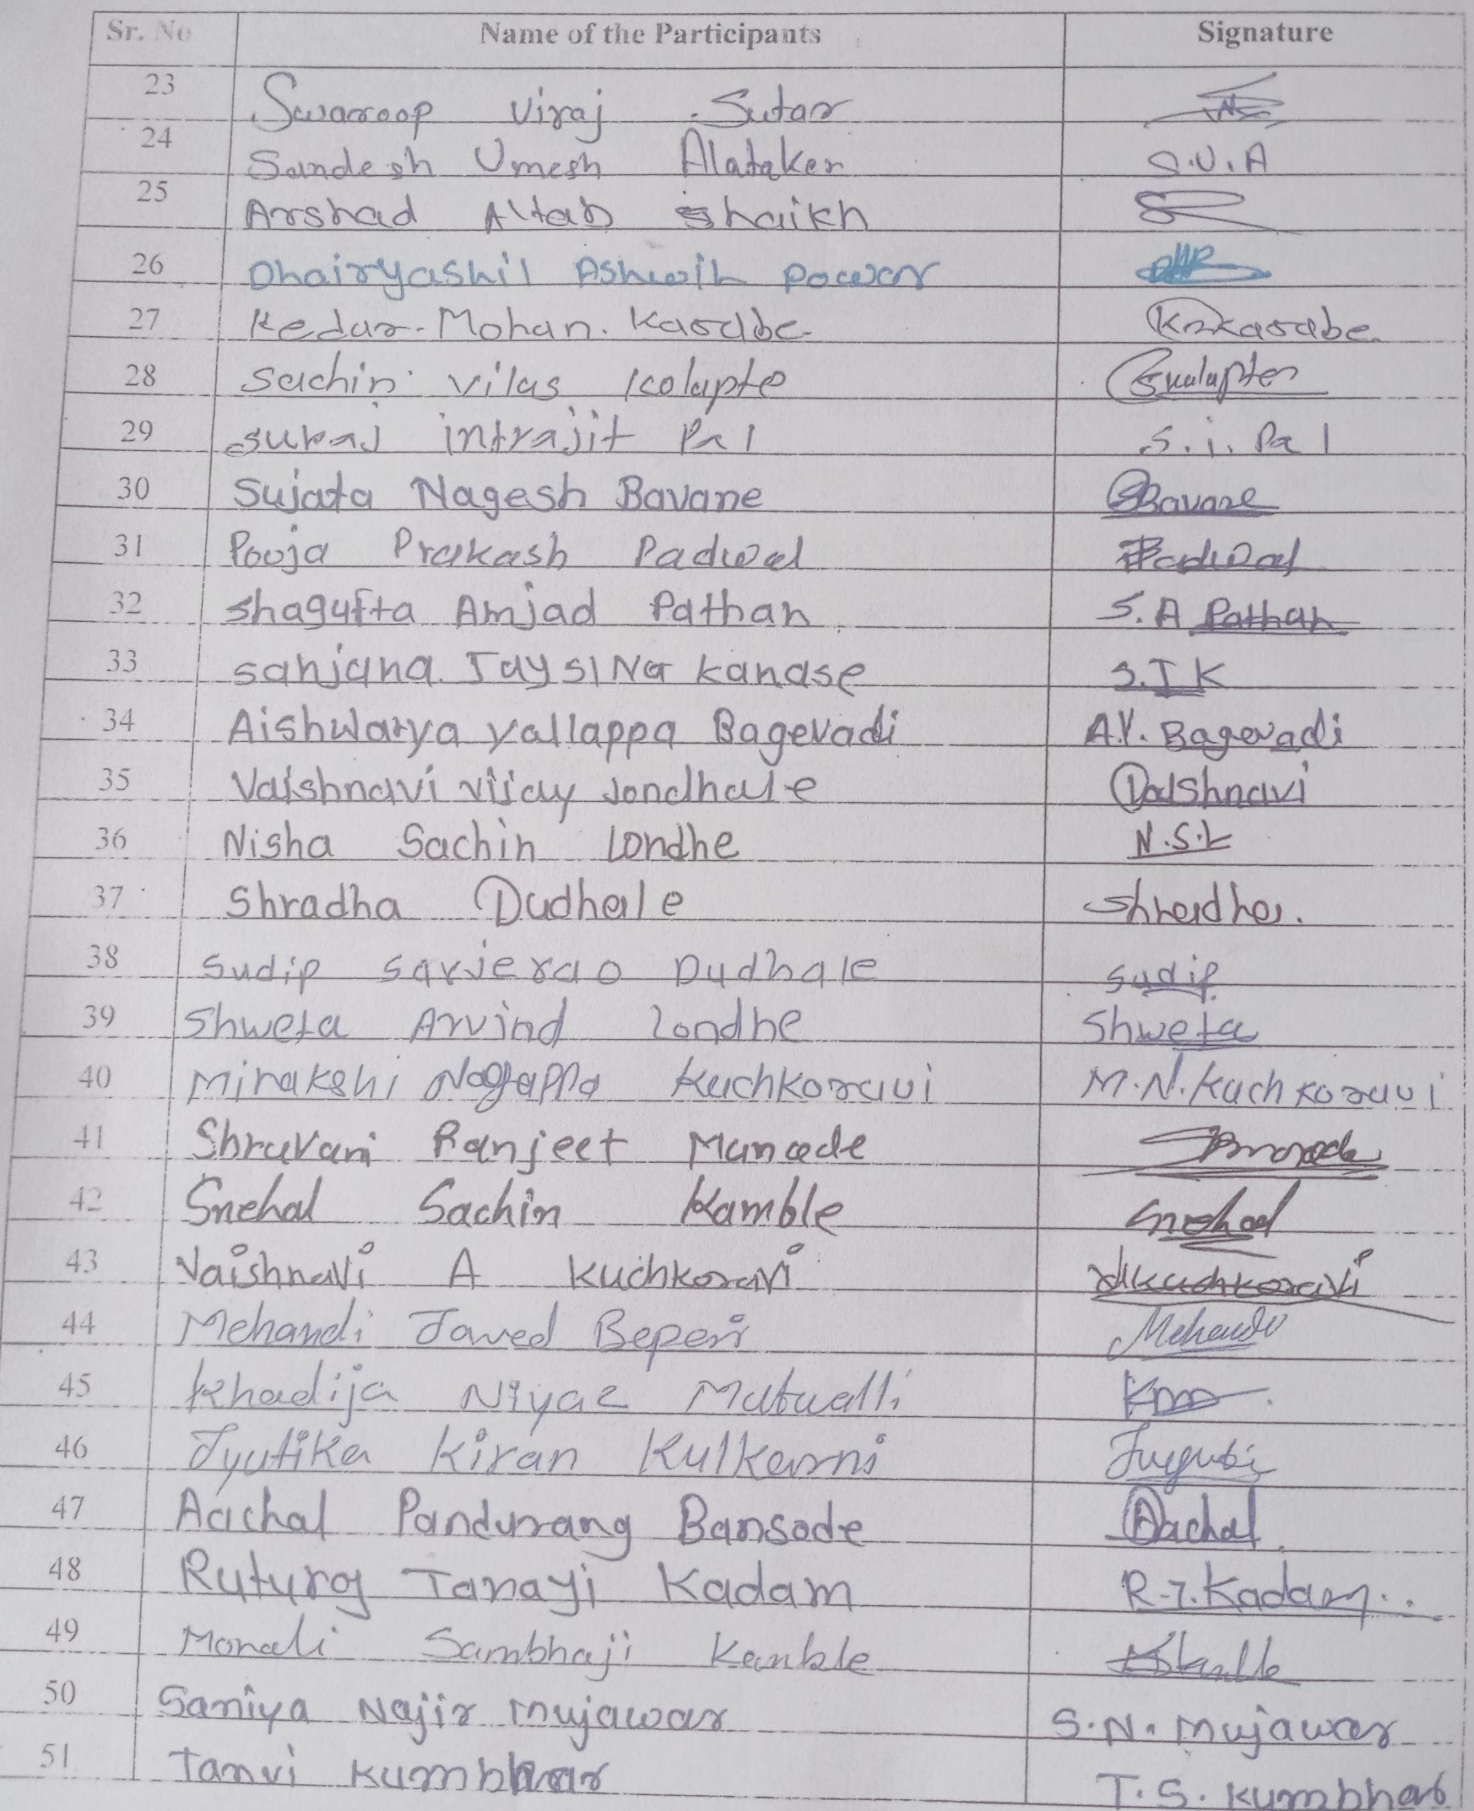 Sr. No Name of the Participants Signature
23 Swaroop Viraj Sutar
24 Sandesh Umesh Alataker S.U.A
25 Arshad Altab shaikh
26 Dhairyashil Ashwih powar
27 Kedar. Mohan. Kasabe Kasabe
28 Sachin vilas Kolapte
29 suraj intrajit Pal S. i. Pal
30 Sujata Nagesh Bavane SBavane
31 Pooja Prakash Padwal Padwal
32 Shagufta Amjad Pathan S. A Pathan
33 sanjana JaysiNG kanase S.J K
34 Aishwarya yallappa Bagevadi A.Y. Bagevadi
35 Vaishnavi vijay Jondhale Vaishnavi
36 Nisha Sachin Londhe N.S.L
37 Shradha Dudhale Shradha.
38 Sudip Sarjerao Dudhale Sudip
39 Shweta Arvind Londhe Shweta
40 Minakshi Nagappa Kuchkoravi M.N. Kuchkoravi
41 Shravani Ranjeet
42 Snehal Sachin Kamble Snehal
43 Vaishnavi A Kuchkoravi Kuchkoravi
44 Mehandi Javed Beperi
45 Khadija Niyaz Mutwalli
46 Jyutika Kiran Kulkarni
47 Aachal Pandurang Bansode Aachal
48 Ruturaj Tanaji Kadam R.T. Kadam..
49 Monali Sambhaji Kamble
50 Saniya Najir mujawar S.N. mujawar
51 Tanvi Kumbhar T.S. Kumbhar